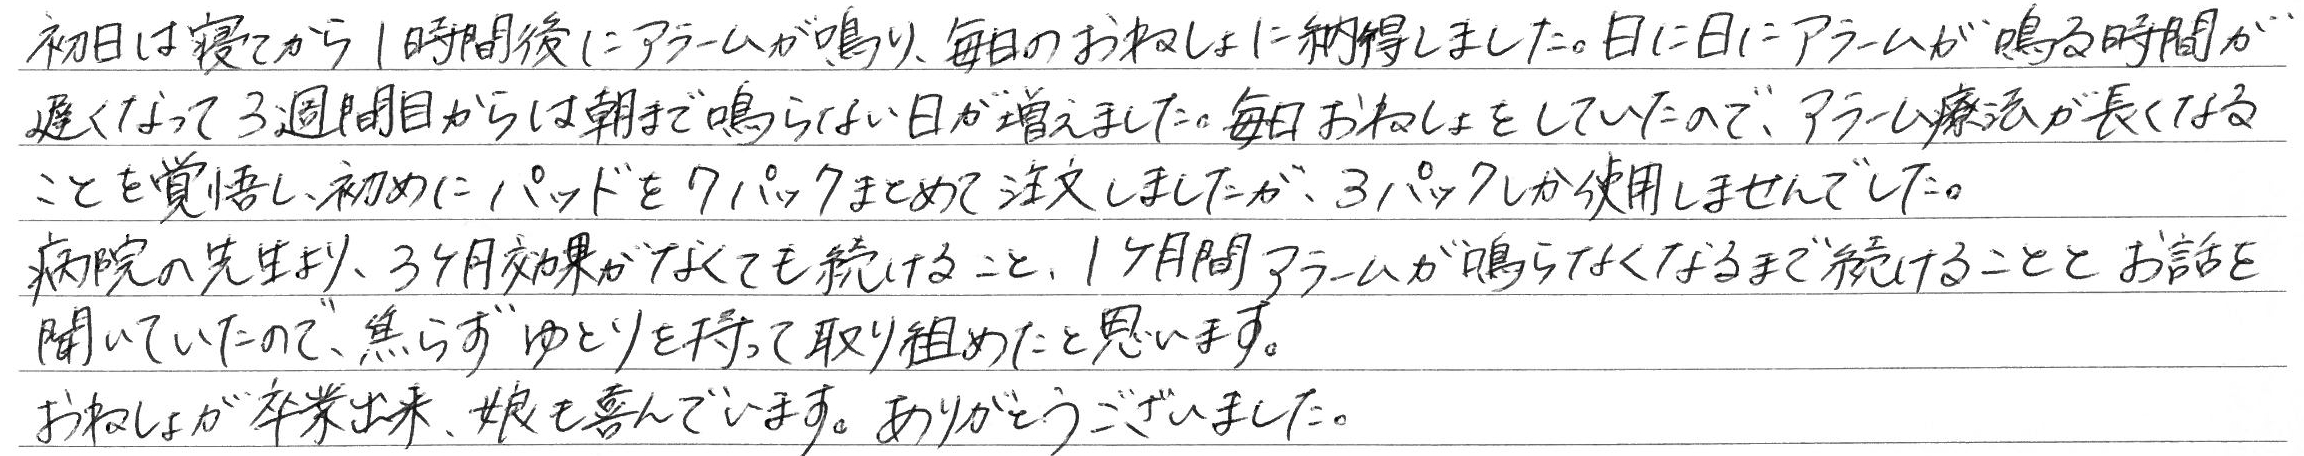 初日は寝てから1時間後にアラームが鳴り、毎日のおねしょに納得しました。日に日にアラームが鳴る時間が
遅くなって3週間目からは朝まで鳴らない日が増えました。毎日おねしょをしていたので、アラーム療法が長くなる
ことを覚悟し、初めにパッドを7パックまとめて注文しましたが、3パックしか使用しませんでした。
病院の先生より、3ケ月効果がなくても続けること、1ケ月間アラームが鳴らなくなるまで続けることとお話を
聞いていたので、焦らずゆとりを持って取り組めたと思います。
おねしょが卒業出来、娘も喜んでいます。ありがとうございました。